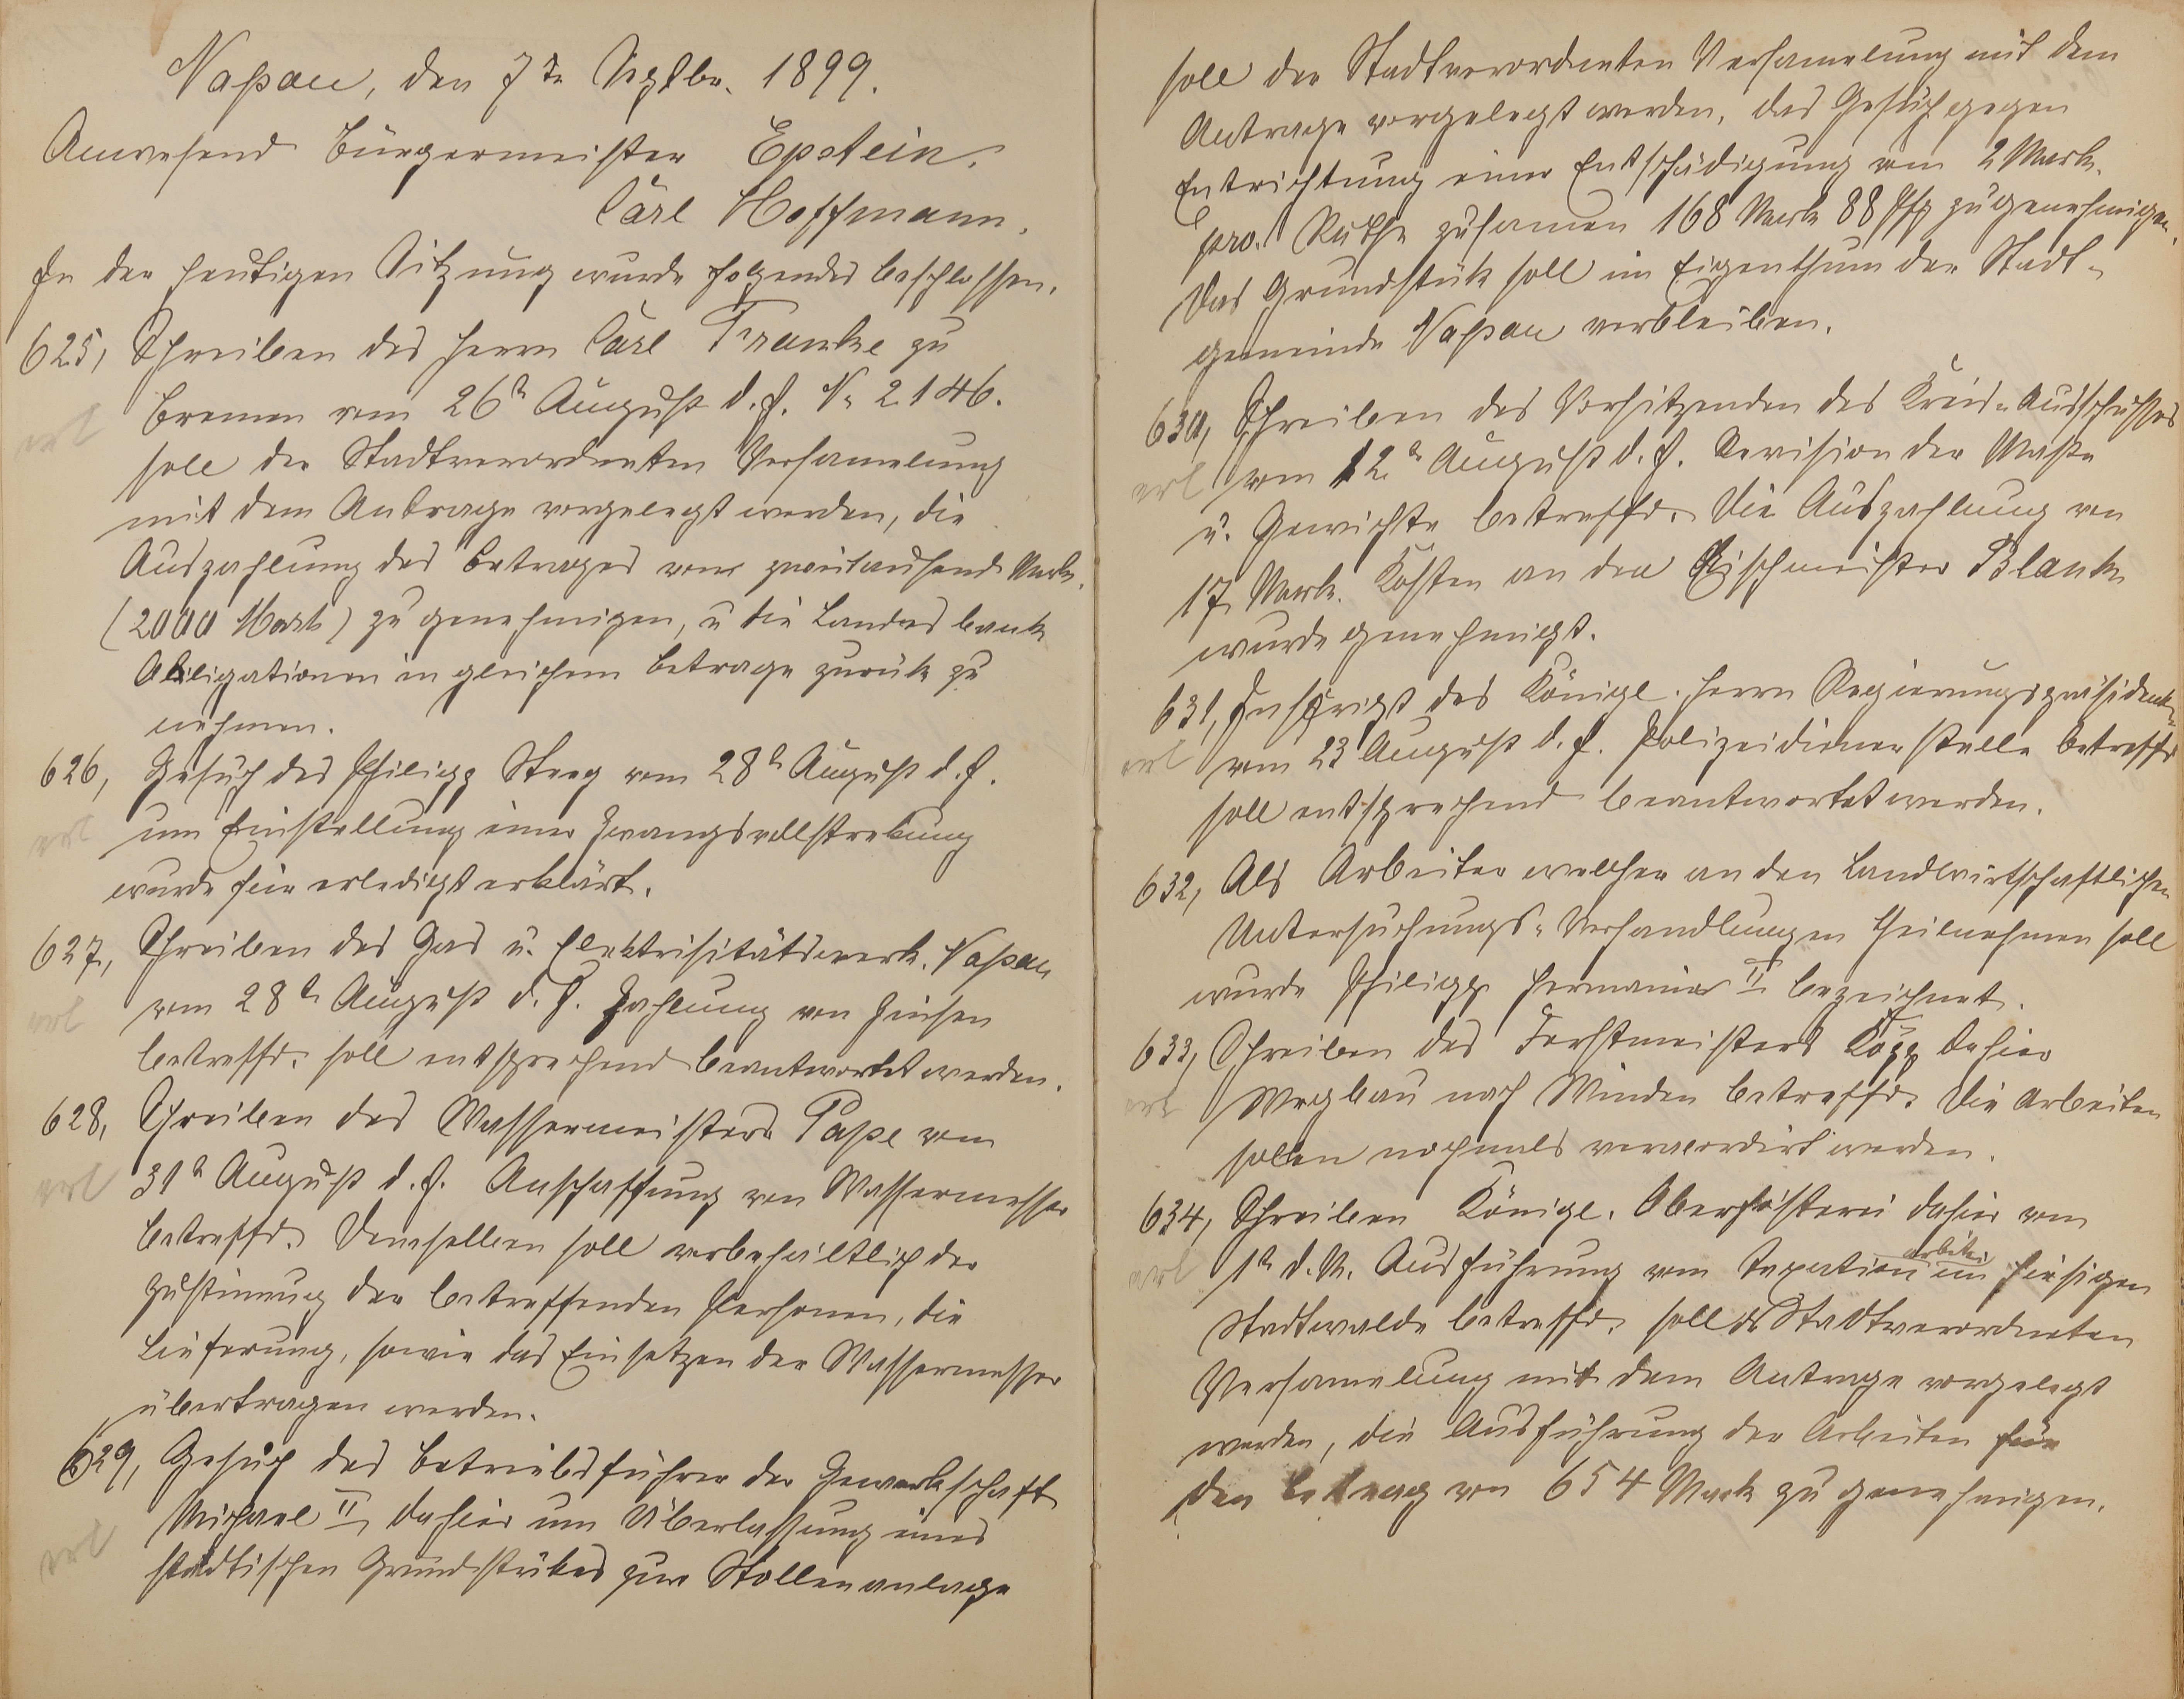 Naßau, den 7te Septbr. 1899.
Anwesend Bürgermeister Epstein.
Carl Hoffmann.
In der heutigen Sitzung wurde folgendes beschlossen.
625, Schreiben des Herrn Carl Franke zu
Bremen vom 26t August d. J. No 2146.
erl
soll der Stadtverordneten Versamelung
mit dem Antrage vorgelegt werden, die
Auszahlung des Betrages vom zweitausend Mark.
(2000 Mark) zu genehmigen, u die Landes bank
Obligationen in gleichem Betrage zurük zu
nehmen.
626, Gesuch des Philipp Steeg vom 28t August d. J.
erl um Einstellung einer Zwangsvollstrekung
wurde für erledigt erklärt.
627, Schreiben des Gas u. Elektrisitätswerk. Naßau
erl vom 28t August d. J. Zahlung von Zinsen
betreffd. soll entsprechend beantwortet werden.
628, Schreiben des Wassermeisters Pape vom
erl 31t August d. J. Anschaffung von Wassermesser
betreffd. Demselben soll vorbehältlich der
Zustimung der betreffenden Personen, die
Lieferung, sowie das Einsetzen der Wassermesser
übertragen werden.
629, Gesuch des Betriebsführer der Gewerkschaft
Michael II dahier um Überlassung eines
erl städtischen Grundstükes zur Stollenanlage
soll der Stadtverordneten Versamelung mit dem
Antrage vorgelegt werden, das Gesuch gegen
Entrichtung einer Entschädigung von 2 Mark.
pro. Ruthe zusamen 168 Mark 88 Pfg zu genehmigen.
Das Grundstük soll im Eigenthum der Stadt-
gemeinde Naßau verbleiben.
630, Schreiben des Vorsitzenden des Kreis-Ausschusses
erl vom 12t August d. J. Revision der Maße
u. Gewichte betreffd. Die Auszahlung von
17 Mark. Kosten an den Eichmeister Blank
wurde genehmigt.
631, Inschrift des Königl. Herrn Regierungspräsidenten
erl vom 23 August d. J. Polizeidienerstelle betreffd
soll entsprechend beantwortet werden.
632, Als Arbeiter welcher an den Landwirtschaftlichen
Untersuchungs-Verhandlungen theilnehmen soll
wurde Philipp Hermanni II bezeichnet.
633, Schreiben des Forstmeisters Köpp dahier
erl Wegbau nach Winden betreffd. Die Arbeiten
sollen nochmals veraccordirt werden.
634, Schreiben Königl. Oberfösterei dahier vom
arbeiten
erl 1t d. M. Ausführung vom Taxation im hiesigen
Stadtwalde betreffd. soll dr Stadtverordneten
Versamelung mit dem Antrage vorgelegt
werden, die Ausführung der Arbeiten für
den Betrag von 654 Mark zu genehmigen.